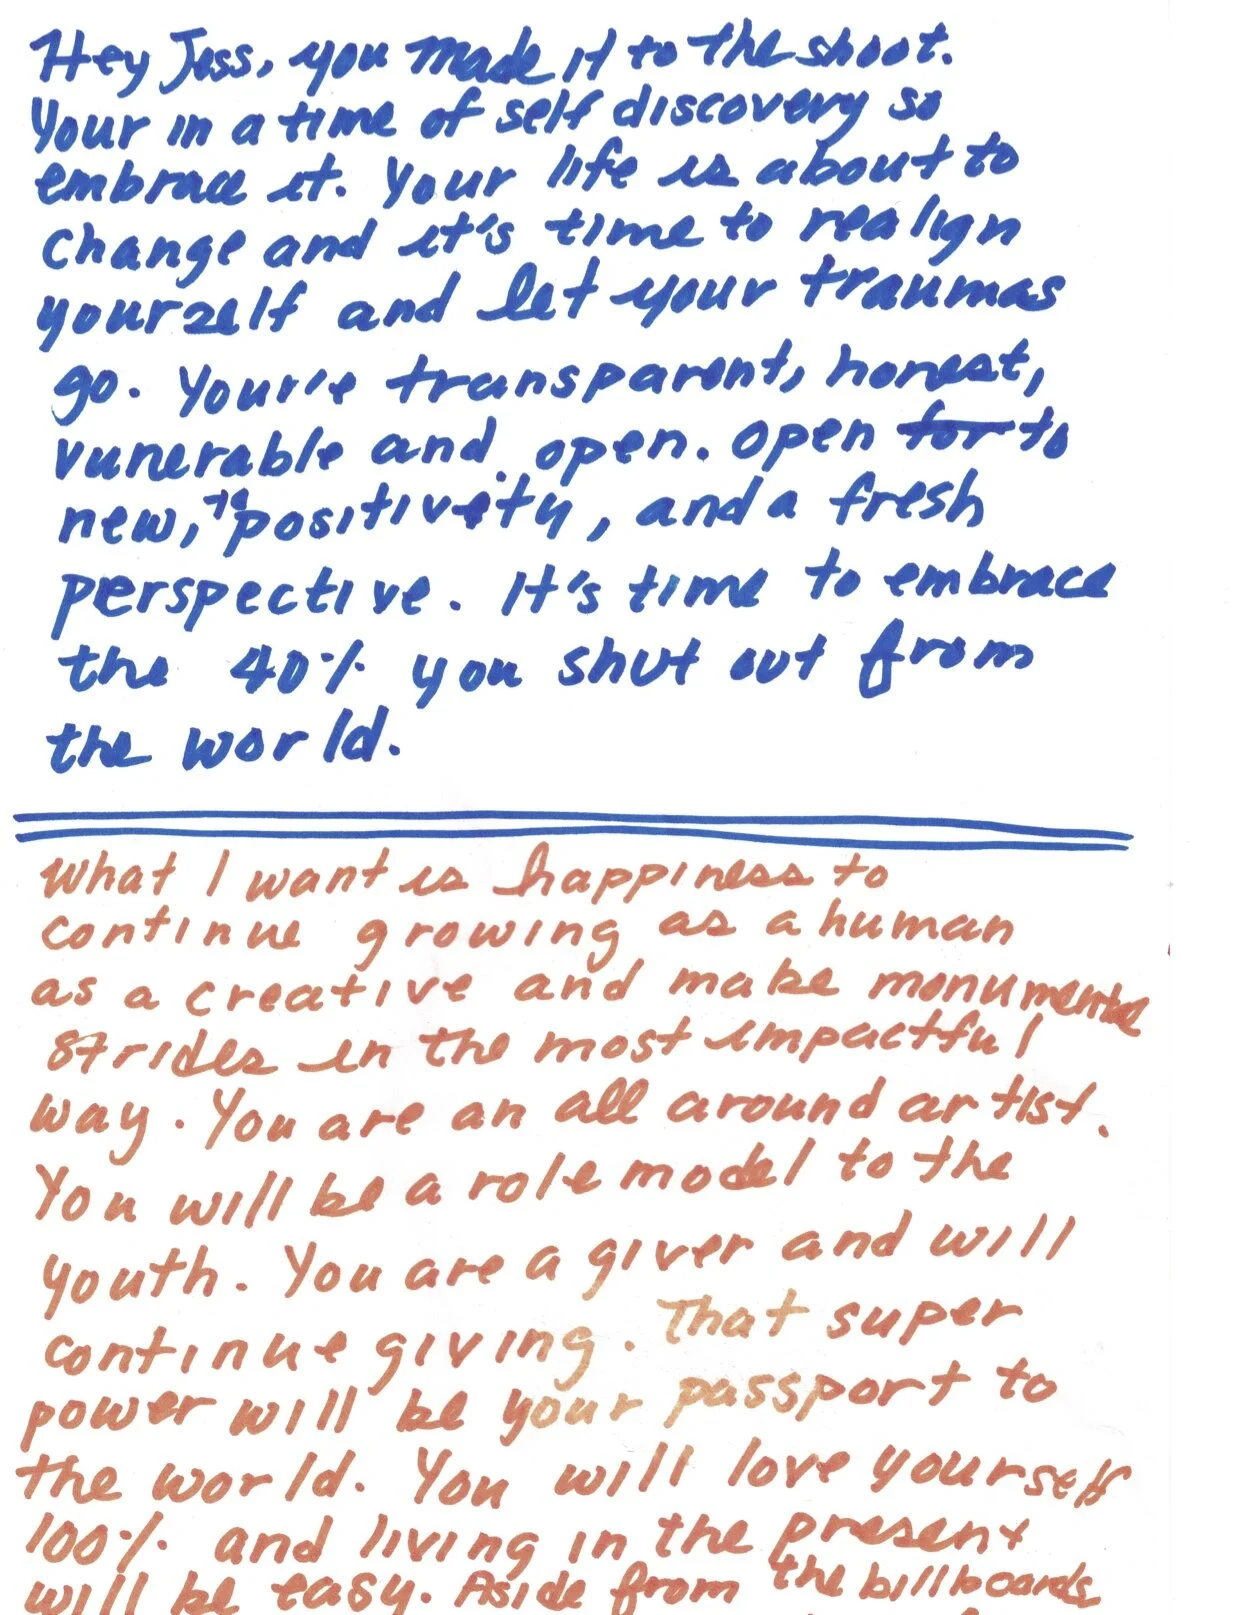 Hey Jess, you made it to the shoot.
Your in a time of self discovery so
embrace it. Your life is about to
change and it's time to realign
yourself and let your traumas
go. Your'e transparent, honest,
vunerable and open. open for to
new, to positivity, and a fresh
perspective. It's time to embrace
the 40% you shut out from
the world.
What I want is happiness to
continue growing as a human
as a creative and make monumental
strides in the most impactful
way. You are an all around artist.
You will be a role model to the
youth. You are a giver and will
continue giving. That super
power will be your passport to
the world. You will love yourself
100% and living in the present
will be easy. Aside from the billboards